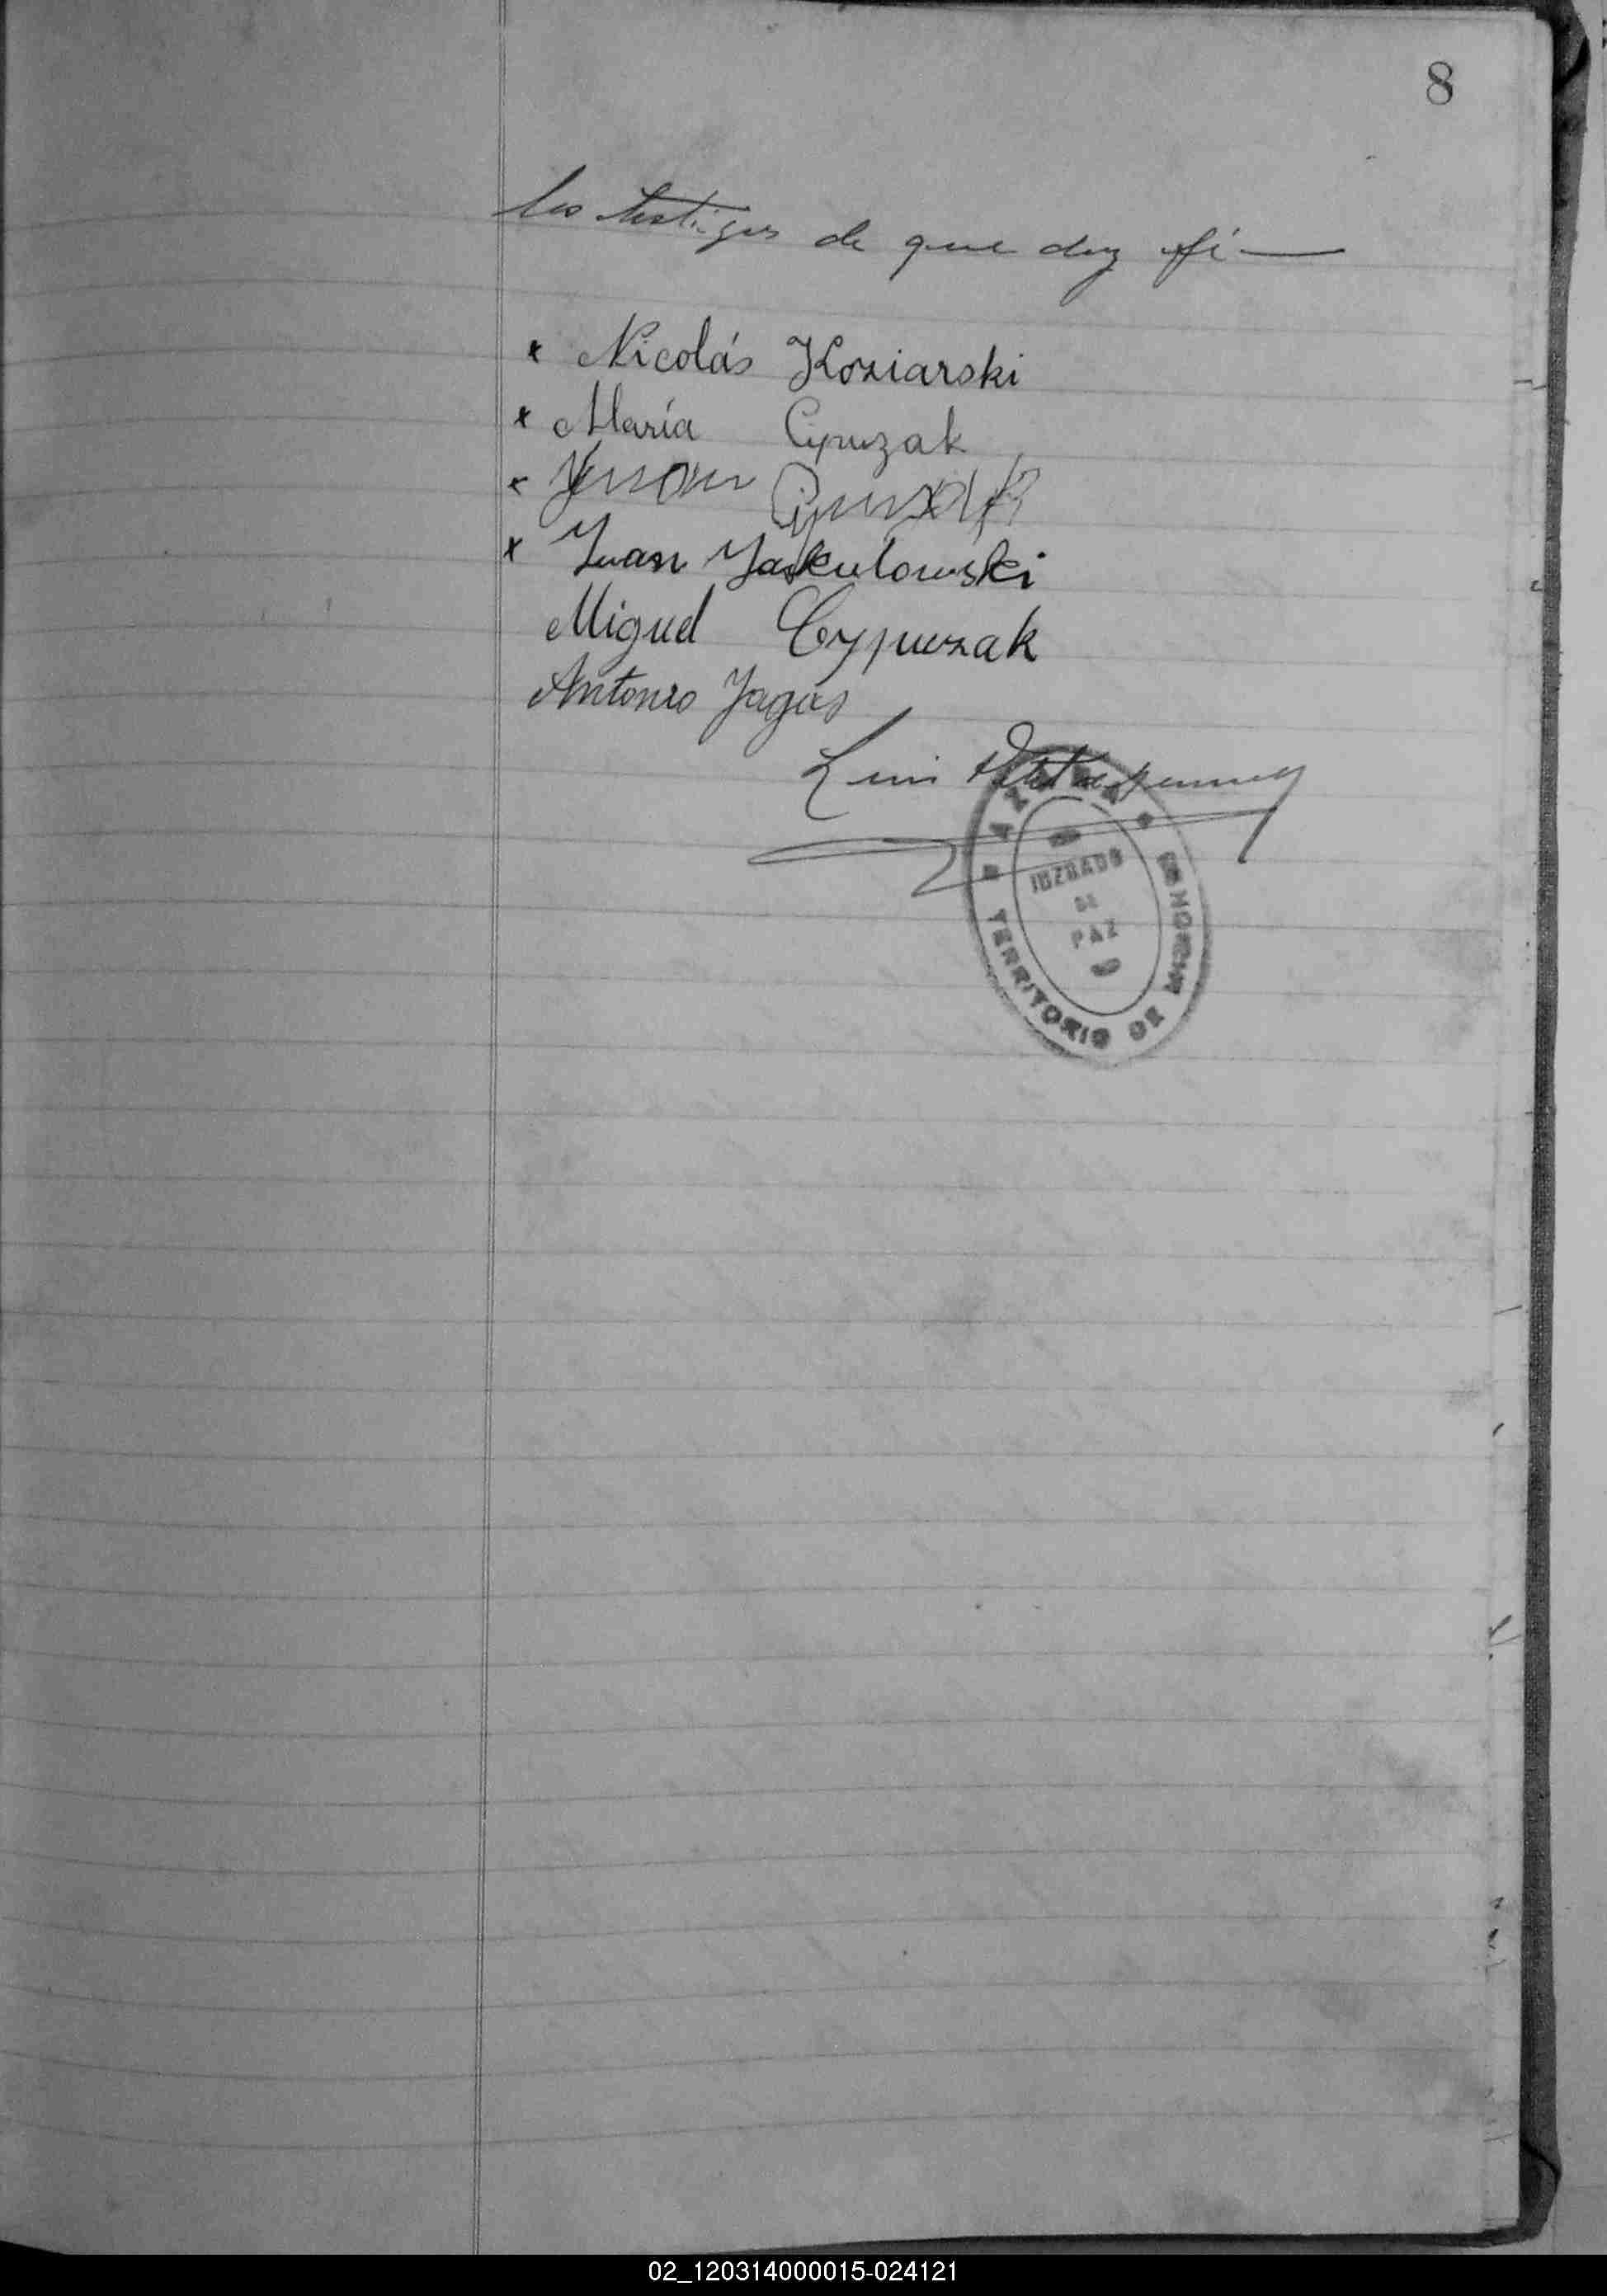 8
los testigos de que doy fé —
x Nicolás Koziarski
x María Cypuzak
x
x Juan Jaskulowski
Miguel Cypuzak
Antonio Jagas
Luis
AZARA
JUZGADO
DE
PAZ
TERRITORIO DE MISIONES
02_120314000015-024121